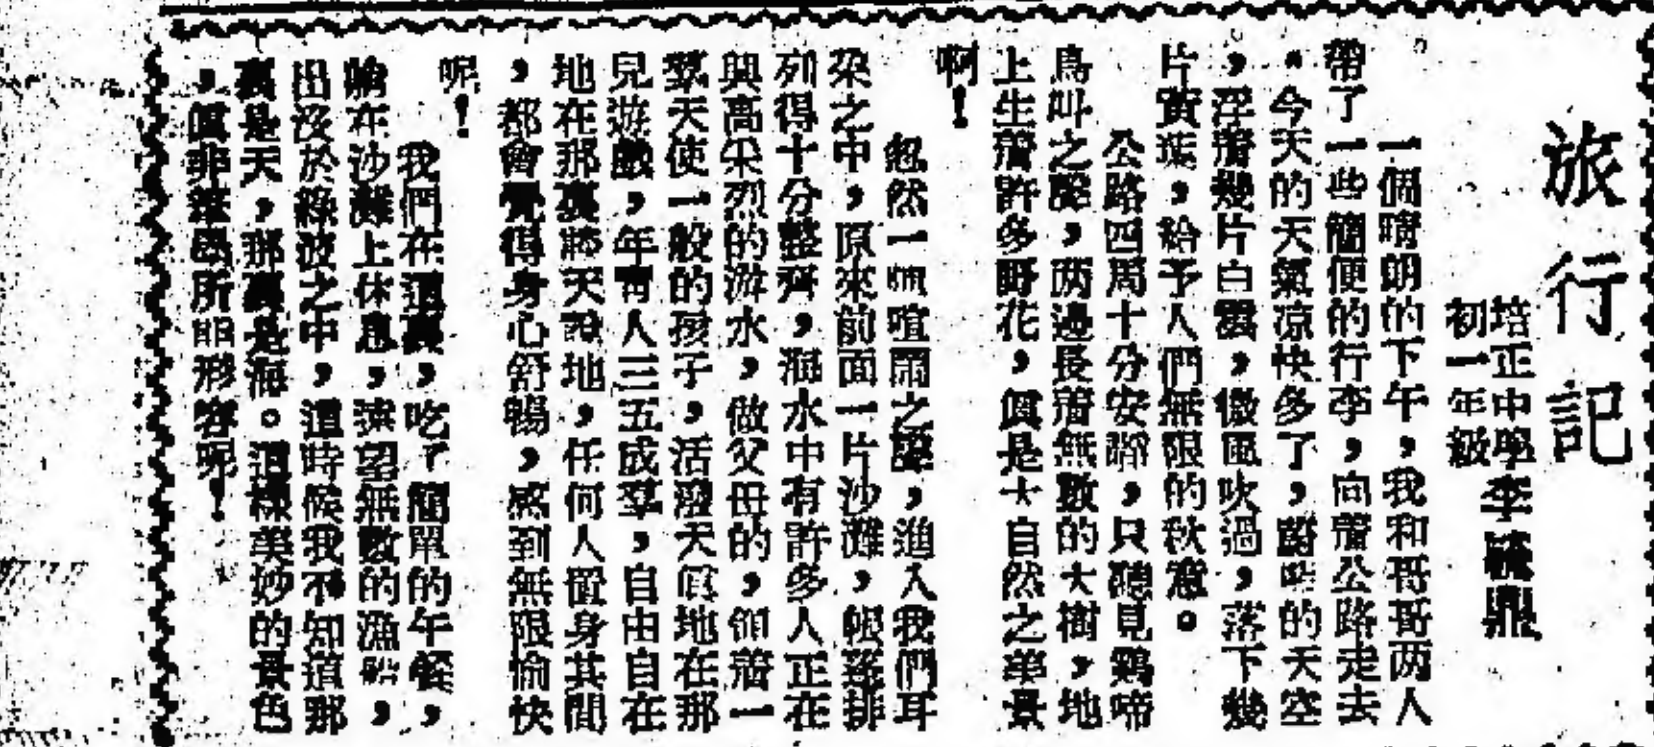 旅行記
培正中學 李毓鼎
初一年級
一個晴朗的下午，我和哥哥两人
帶了一些簡便的行李，向着公路走去
。今天的天氣凉快多了，蔚藍的天空
，浮着幾片白雲，微風吹過，落下幾
片黃葉，給予人們無限的秋意。
公路四周十分安靜，只聽見鷄啼
鳥叫之聲，两邊長着無數的大樹，地
上生着許多野花，眞是大自然之美景
啊！
忽然一陣喧鬧之聲，進入我們耳
朶之中，原來前面一片沙灘，帳蓬排
列得十分整齊，海水中有許多人正在
興高采烈的游水，做父母的，領着一
羣天使一般的孩子，活潑天眞地在那
兒遊戲，年靑人三五成羣，自由自在
地在那裏談天說地，任何人置身其間
，都會覺得身心舒暢，感到無限愉快
呢！
我們在這裏，吃了簡單的午餐，
躺在沙灘上休息，遠望無數的漁船，
出没於綠波之中，這時候我不知道那
裏是天，那裏是海。這樣美妙的景色
，眞非筆墨所能形容呢！